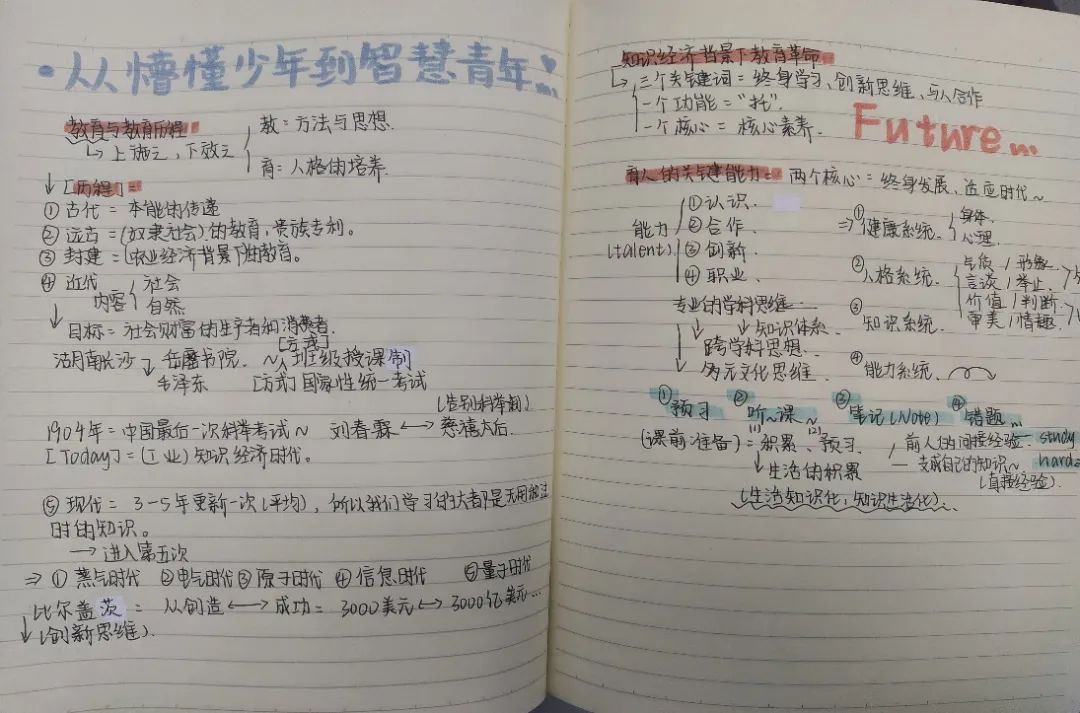 •从懵懂少年到智慧青年...
教育与教育历程
↳上施之,下效之
教:方法与思想.
育:人格的培养.
↓[历程]=
①古代=本能的传递
②远古=(奴隶社会)的教育,贵族专利。
③封建=(农业经济背景下的教育。
④近代
内容
社会
自然
目标=社会财富的生产者和消费者.
[方式]
湖南长沙 岳麓书院. ~班级授课制
毛泽东 [方式]国家性统一考试
(告别科举制)
1904年=中国最后一次科举考试~ 刘春霖⟷慈禧太后.
[Today]=(工业)知识经济时代。
⑤现代= 3-5年更新一次(平均),所以我们学习的大都是无用能过
时的知识。
→进入第五次
⇒①蒸气时代 ②电气时代③原子时代 ④信息时代 ⑤量子时代
比尔盖茨= 从创造⟷成功= 3000美元⟷3000亿美元...
(创新思维).
知识经济背景下教育革命
↳三个关键词=终身学习、创新思维、与人合作
一个功能="托".
一个核心=核心素养.
Future...
育人的关键能力= 两个核心=终身发展、适应时代~
能力
(talent)
①认识.
②合作.
③创新.
④职业.
⇒①健康系统.
身体.
心理.
②人格系统.
气质/形象.
言谈/举止.
价值/判断.
审美/情趣.
③知识系统.
④能力系统.
专业的学科思维.
↘知识体系.
跨学科思想.
多元文化思维.
①预习 ②听~课 ③笔记(Note) ④错题...
(课前准备)=(1)积累、(2)预习.
前人的间接经验. study
—变成自己的知识~ hard
(直接经验).
↓生活的积累
(生活知识化,知识生活化).